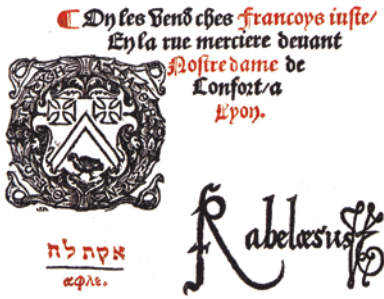 ¶ On les Vend ches Francoys iuste/
En la rue merciere devant
Nostre dame de
Confort/a
Lyon.
Rabelæsus
אקת לח
αφλε.